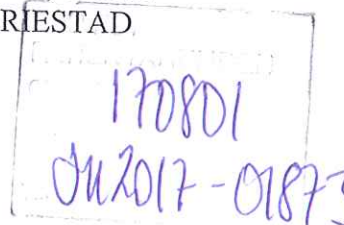 RIESTAD
170801
Ju2017-01873